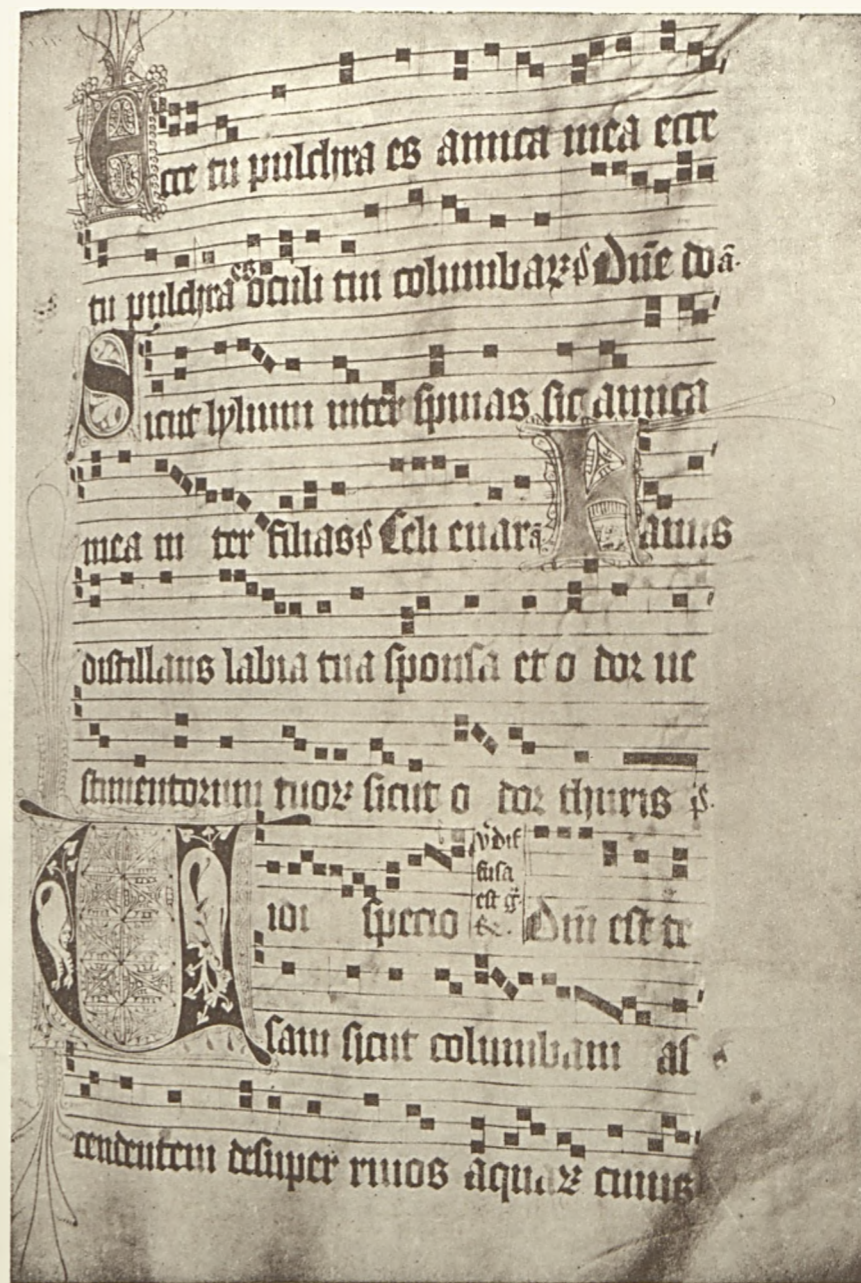 Ecce tu pulchra es amica mea ecce
tu pulchra es oculi tui columbarꝝ p̄s Dn̄e do ā.
Sicut lylium inter spinas sic amica
mea in ter filias p̄s Celi enar ā Fauus
distillans labia tua sponsa et o dor ue
stimentorum tuorꝝ sicut o dor thuris p̄s.
Uidi specio Dm̄ est te
v̄ dif
fusa
est gr̄
&.
sam sicut columbam as
cendentem desuper riuos aquaꝝ cuius